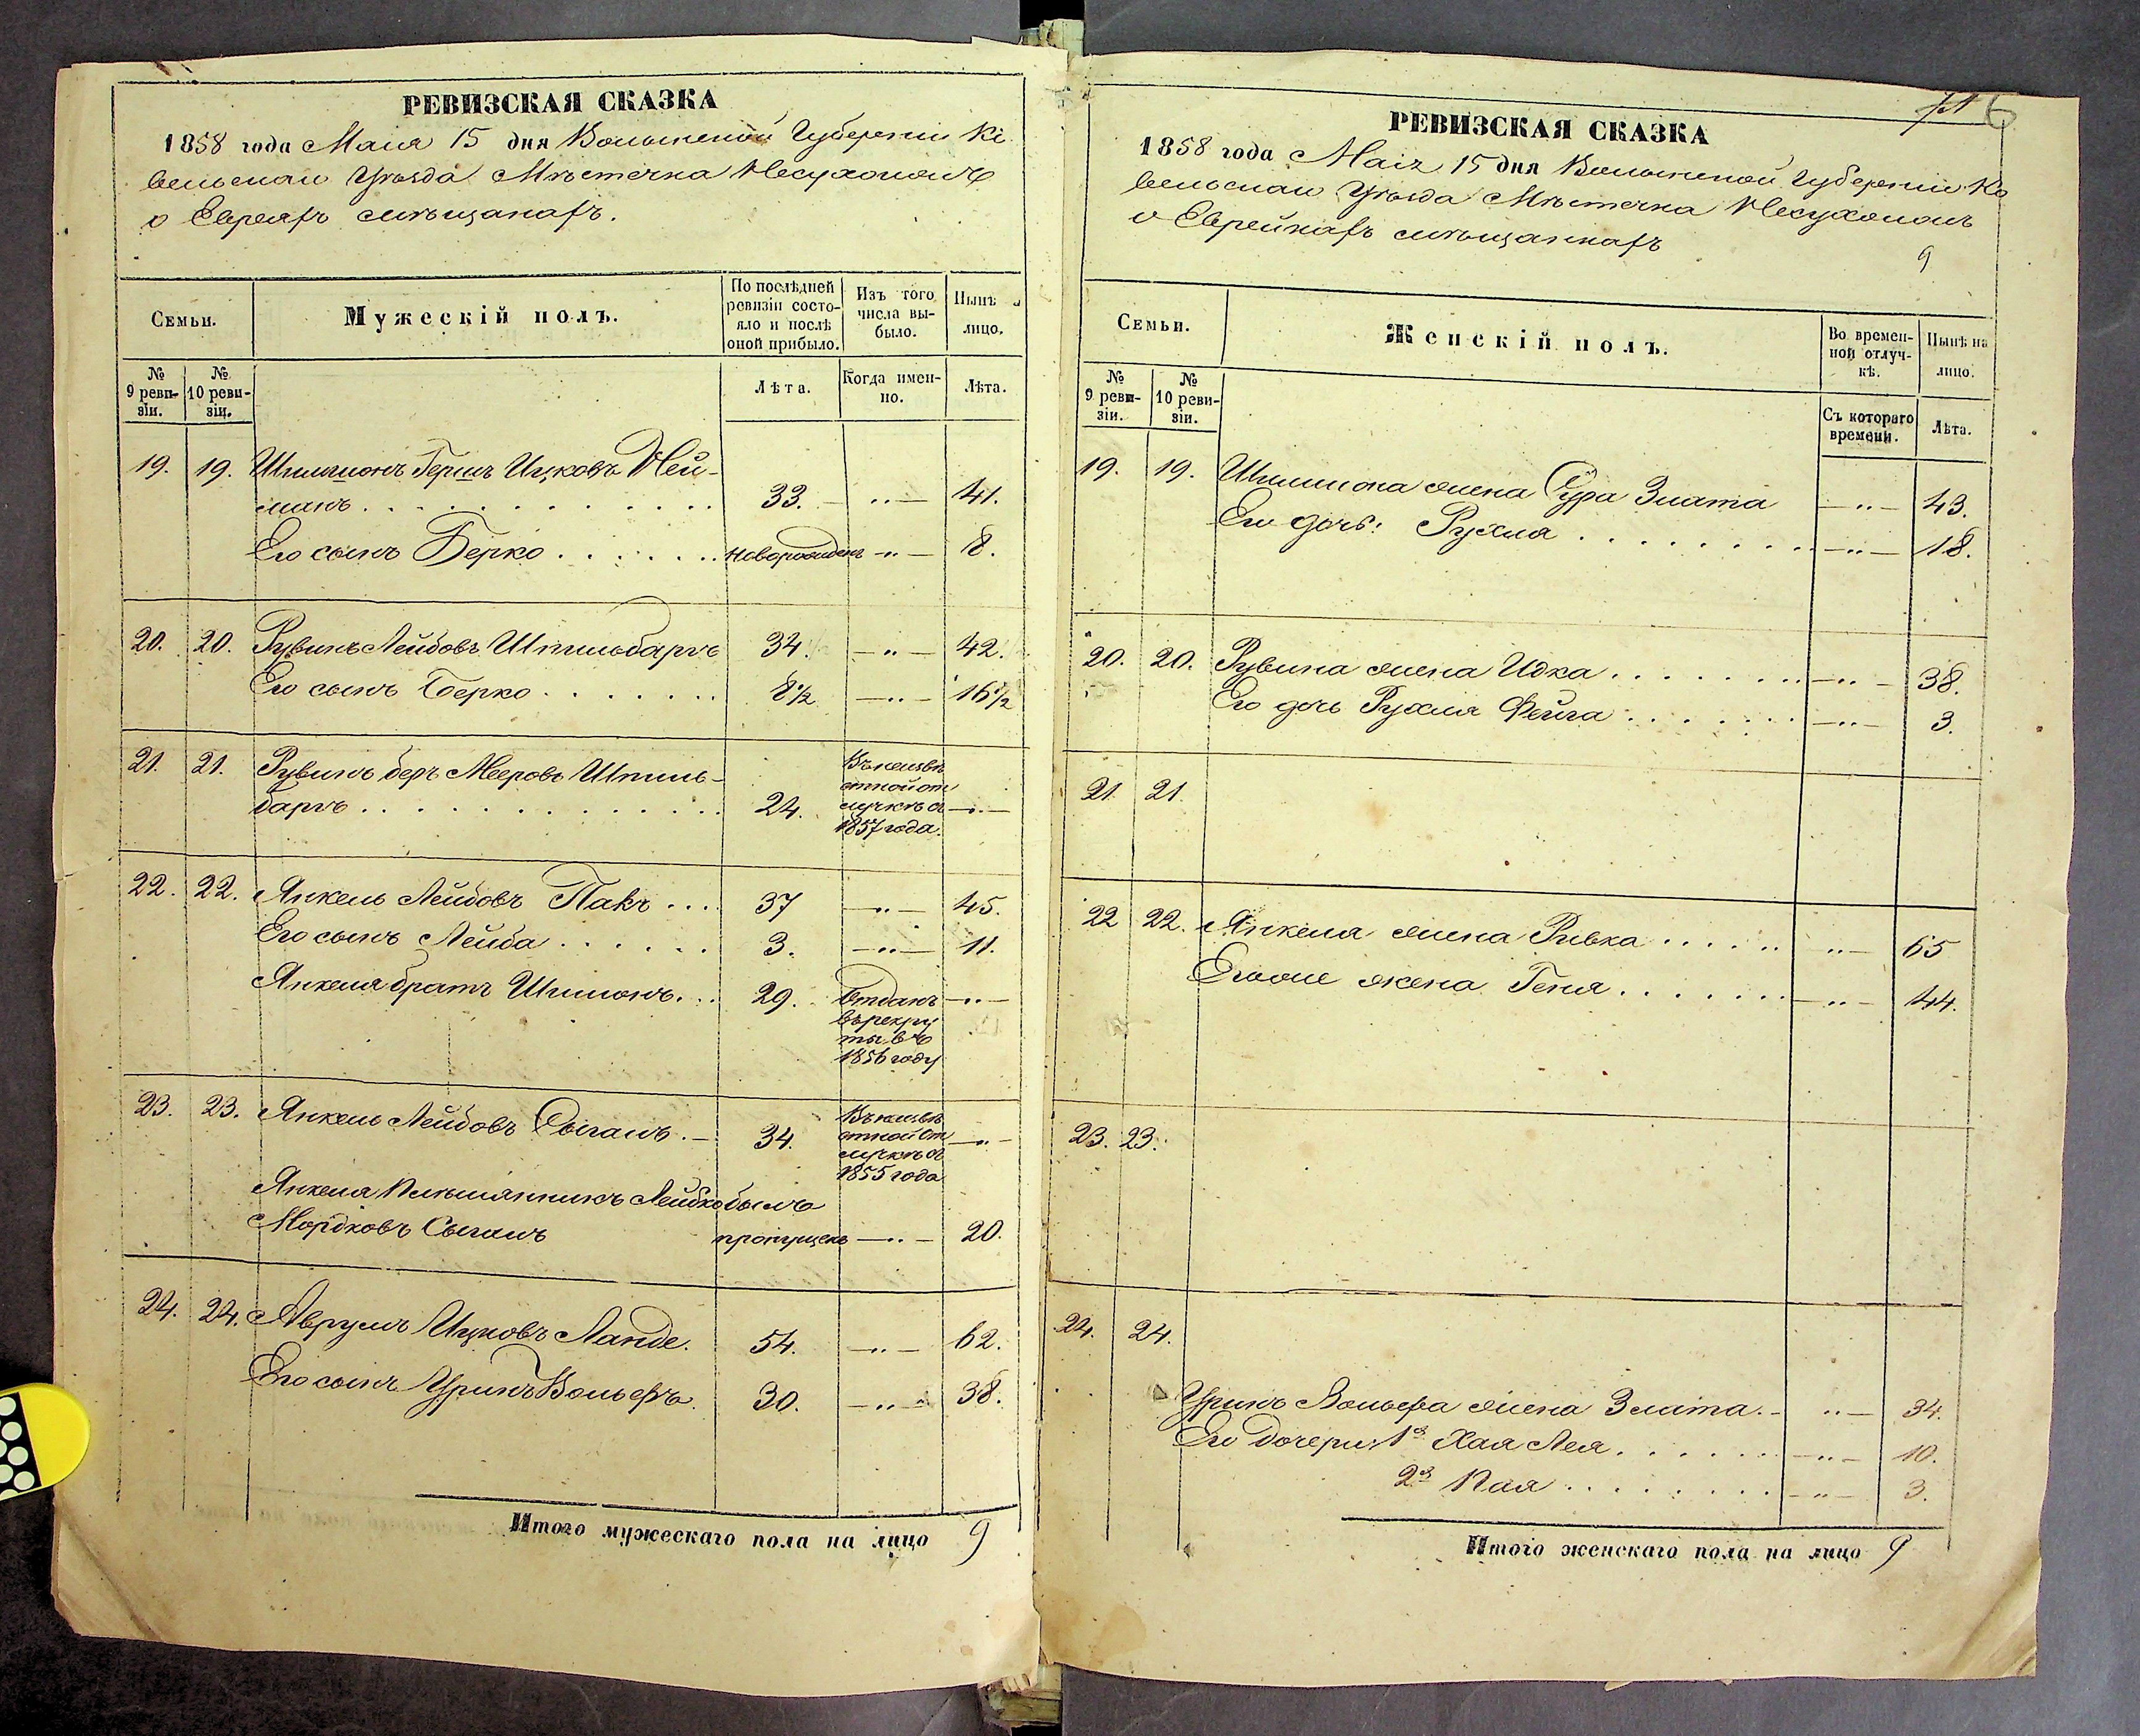 РЕВИЗСКАЯ СКАЗКА
1858 года Маія 15 дня Волынской Губерніи Ко
вельскаго Уѣзда Мѣстечка Несухоижъ
о Евреяхъ мѣщанахъ.
Семьи.
Мужескій полъ.
По послѣдней ревизіи состояло и послѣ оной прибыло.
Изъ того числа выбыло.
Нынѣ
лицо.
№ 9 ревизіи.
№ 10 ревизіи.
Лѣта.
Когда именно.
Лѣта.
19. 19. Шлимионъ Гершъ Ицковъ Ней-
манъ . . . 33. — „ — 41.
Его сынъ Берко . . . новорожденъ — „ — 8.
20. 20. Рувинъ Лейбовъ Шпильбаргъ 34. — „ — 42.
Его сынъ Берко . . . 8½ — „ — 16½
21. 21. Рувинъ Беръ Мееровъ Шпиль-
баргъ . . . 24. Въ неизвѣ
стной от
лучкѣ съ — „ —
1857 года.
22. 22. Янкель Лейбовъ Пакъ . . . 37 — „ — 45.
Его сынъ Лейба . . . 3. — „ — 11.
Янкеля братъ Шимонъ . . . 29. Отданъ — „ —
въ рекру
ты въ
1856 году
23. 23. Янкель Лейбовъ Сыганъ . — 34. Въ неизвѣ
стной От
лучкѣ съ — „ —
1855 года
Янкеля Племянникъ Лейбко былъ
Мордковъ Сыганъ пропущенъ — „ — 20.
24. 24. Аврумъ Ицковъ Ланде. 54. — „ — 62.
Его сынъ Уринъ Вольфъ. 30. — „ — 38.
Итого мужескаго пола на лицо 9
6
РЕВИЗСКАЯ СКАЗКА
1858 года Маія 15 дня Волынской Губерніи Ко
вельскаго Уѣзда Мѣстечка Несухоижъ
о Еврейкахъ мѣщанкахъ
9
Семьи.
Женскій полъ.
Во временной отлучкѣ.
Нынѣ на лицо.
№ 9 ревизіи.
№ 10 ревизіи.
Съ котораго времени.
Лѣта.
19. 19. Шлимиона жена Сура Злата — „ — 43.
Его дочь: Рухля . . . — „ — 18.
20. 20. Рувина жена Идка . . . — „ — 38.
Его дочь Рухля Фейга . . . — „ — 3.
21. 21.
22 22. Янкеля жена Ривка . . . „ — 65
Егоже жена Геня . . . — „ — 44.
23. 23.
24. 24.
Уринъ Вольфа жена Злата. — „ — 34.
Его дочери: 1я Хая Лея . . . — „ — 10.
2я Пая . . . — „ — 3.
Итого женскаго пола на лицо 9